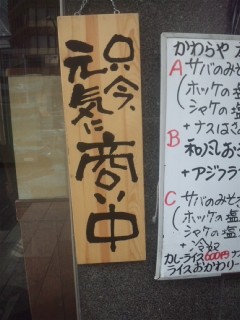 只今、
元気に
商い中
かわらや
A サバのみそ
(ホッケの塩
シャケの塩
+ナスはさ
B 和風お
+アジフラ
C サバのみそ
(ホッケの塩
シャケの塩
+冷奴
カレーライス600円
ライスおかわり